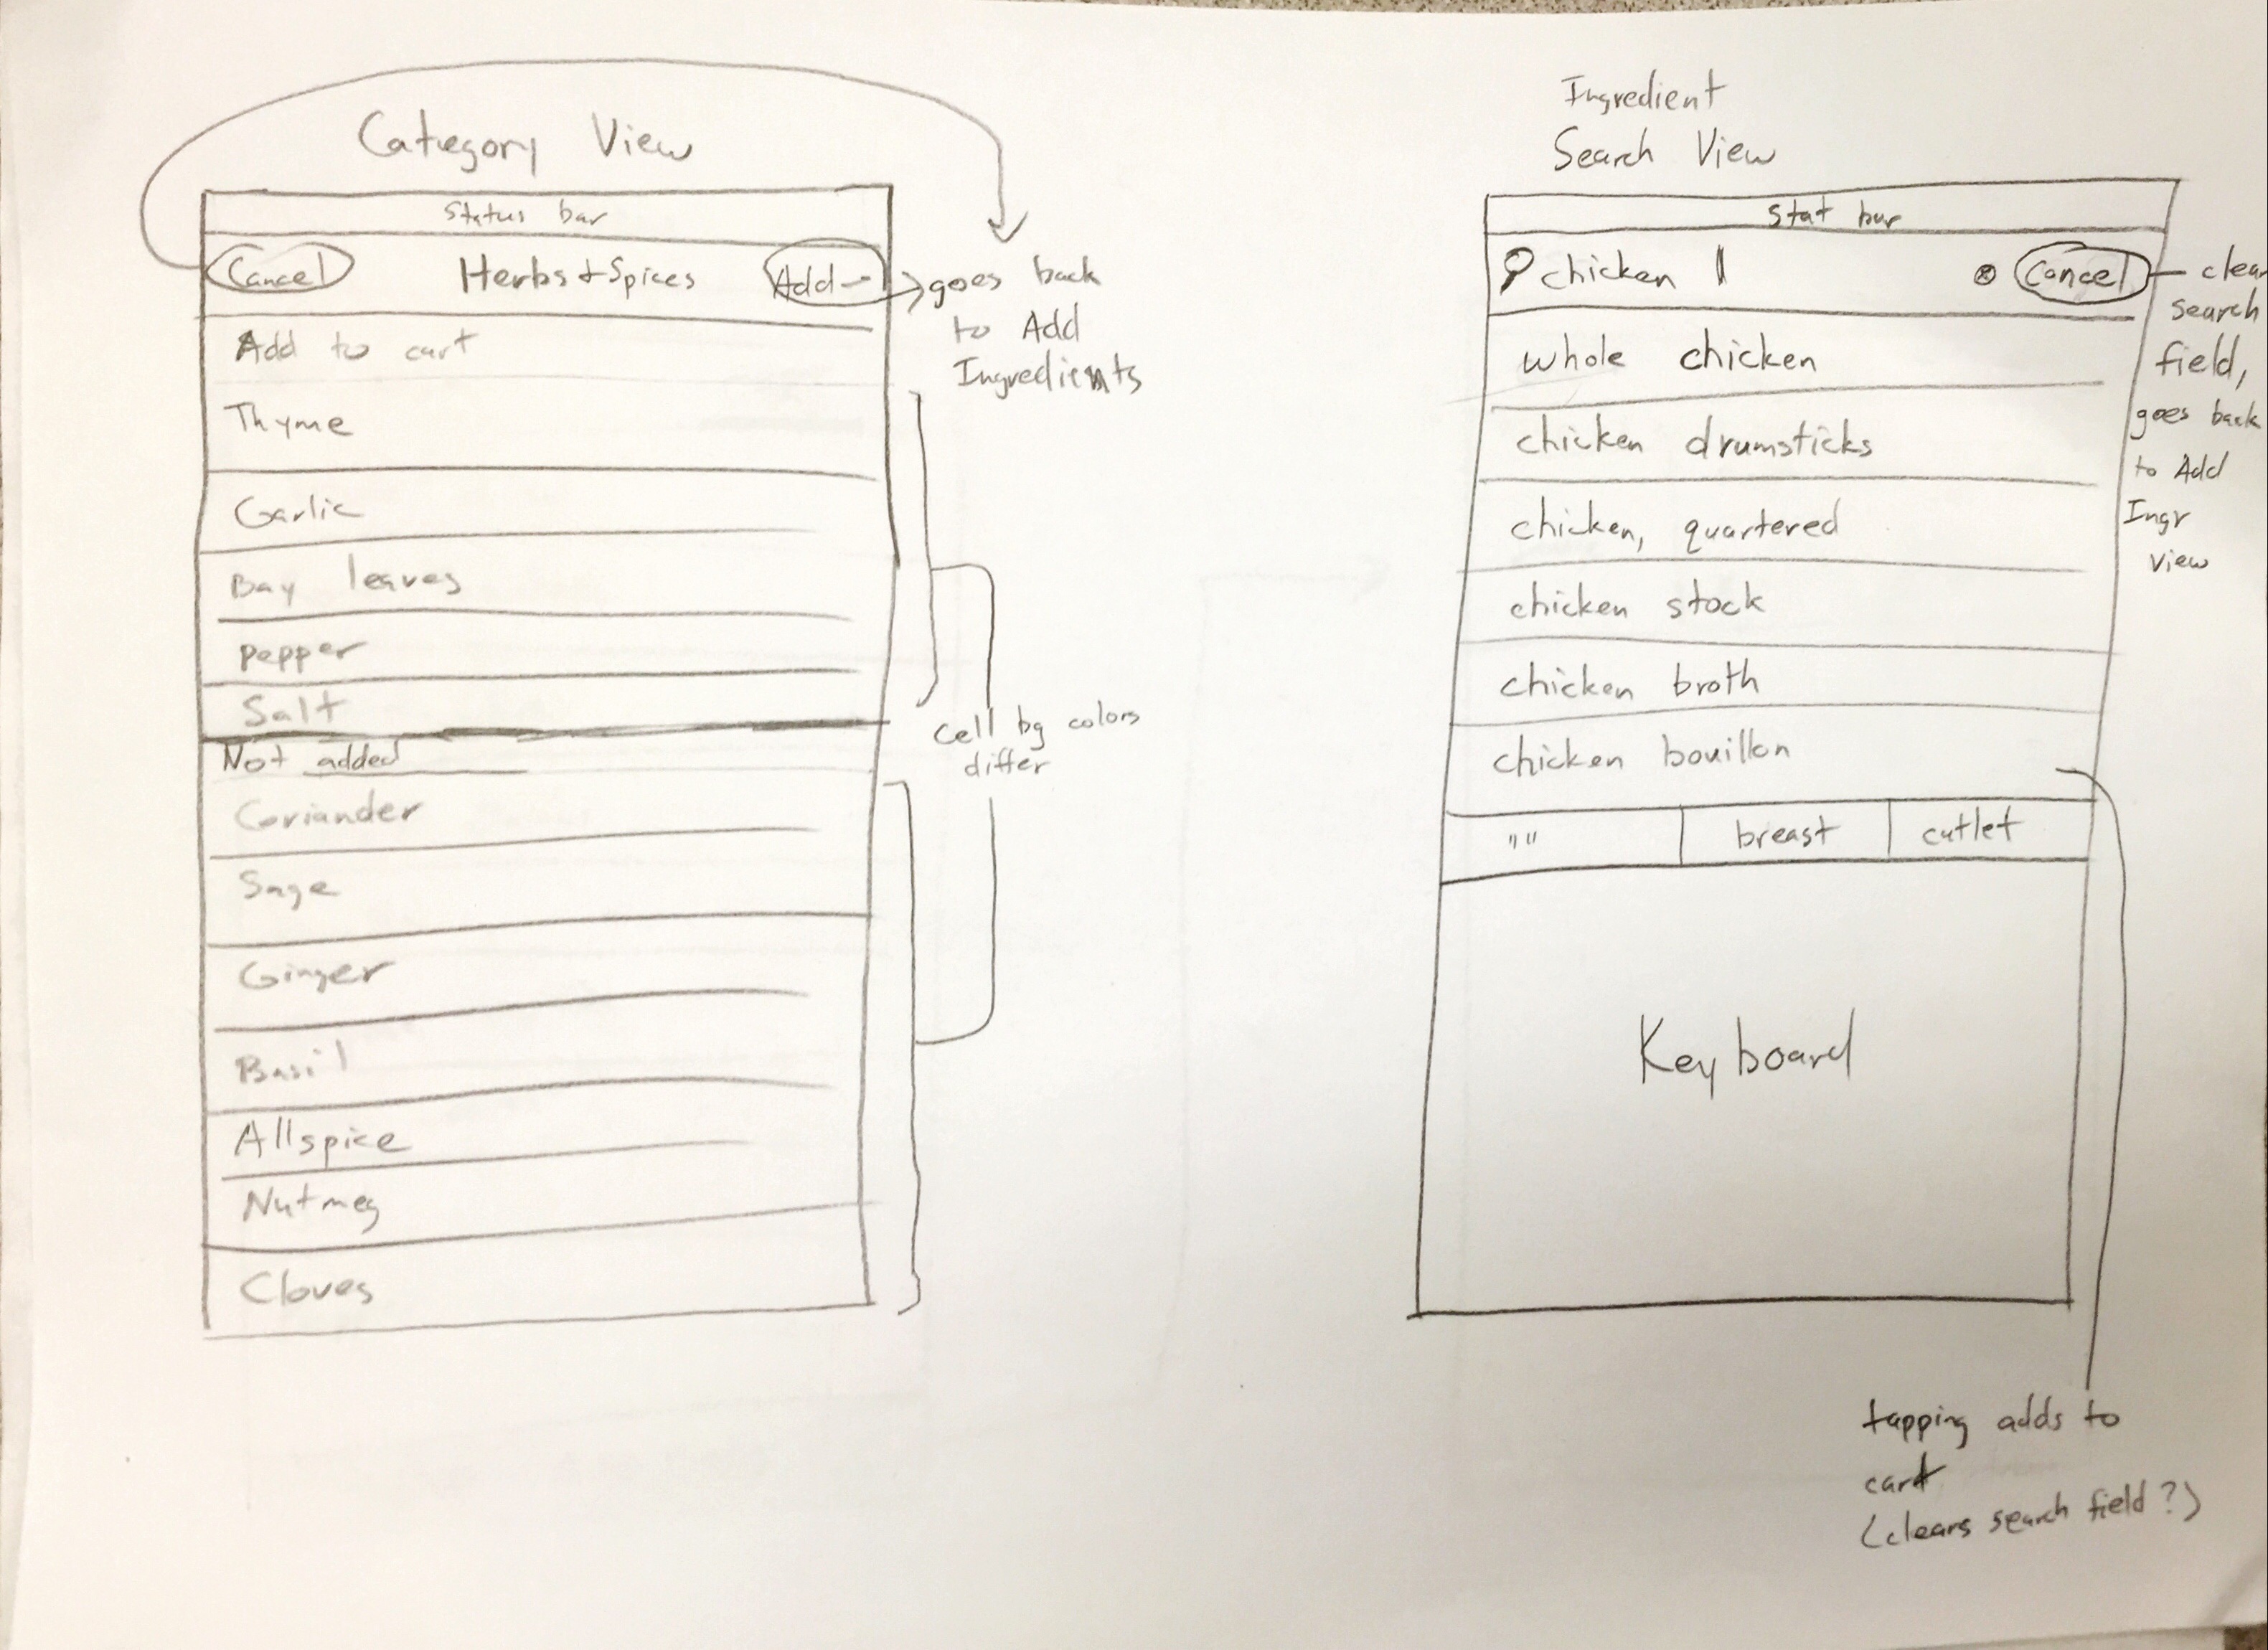 Category View
Status bar
Cancel Herbs & Spices Add
goes back
to Add
Ingredients
Add to cart
Thyme
Garlic
Bay leaves
pepper
Salt
Not added
cell bg colors
differ
Coriander
Sage
Ginger
Basil
Allspice
Nutmeg
Cloves
Ingredient
Search View
Stat bar
chicken Cancel
clear
search
field,
goes back
to Add
Ingr
View
whole chicken
chicken drumsticks
chicken, quartered
chicken stock
chicken broth
chicken bouillon
" " breast cutlet
Keyboard
tapping adds to
cart
(clears search field?)